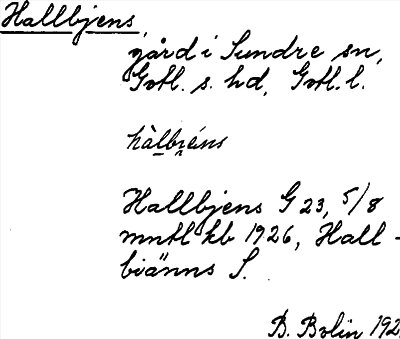 Hallbjens,
gård i Sundre sn,
Gotl. s. hd, Gotl. l.
hàlbi̯éns
Hallbjens G 23, 5/8
mntl kb 1926, Hall-
biänns S.
B. Bolin 192